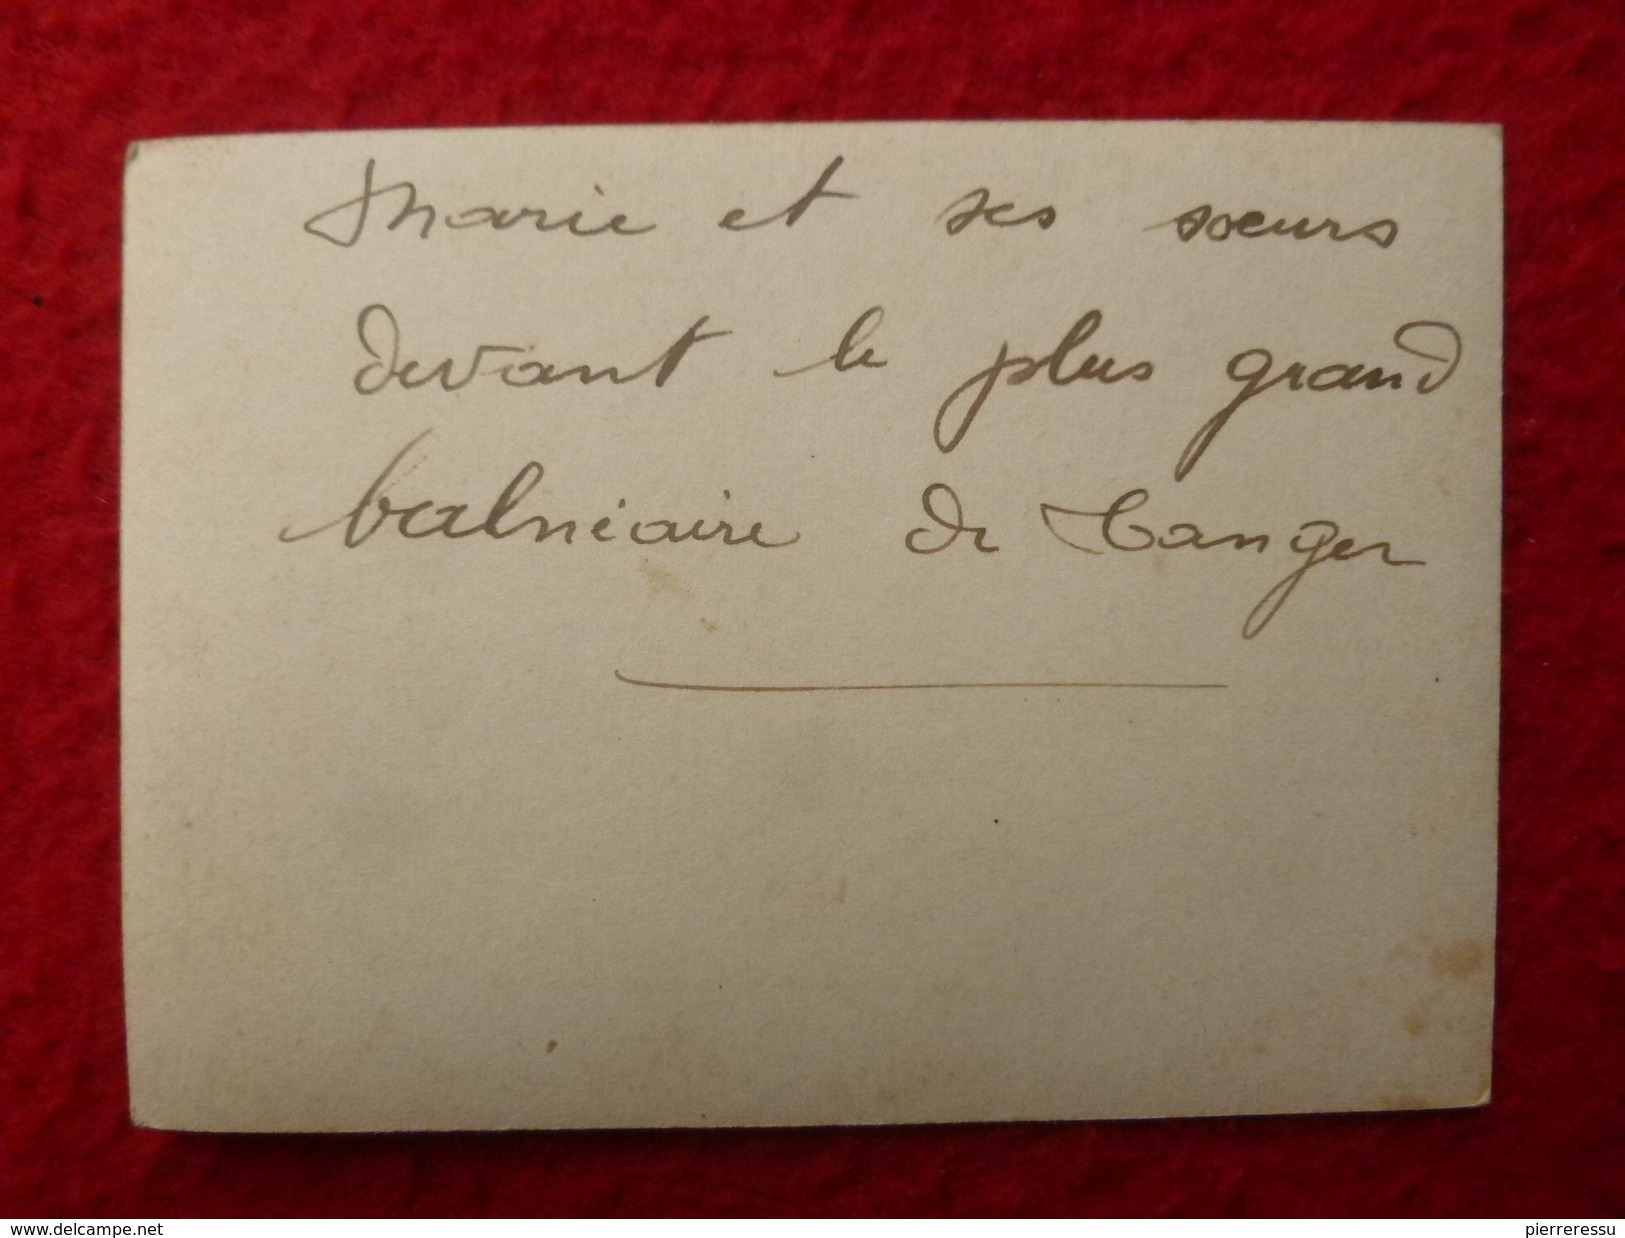 Marie et ses sœurs
devant le plus grand
balnéaire de Tanger
www.delcampe.net
pierreressu